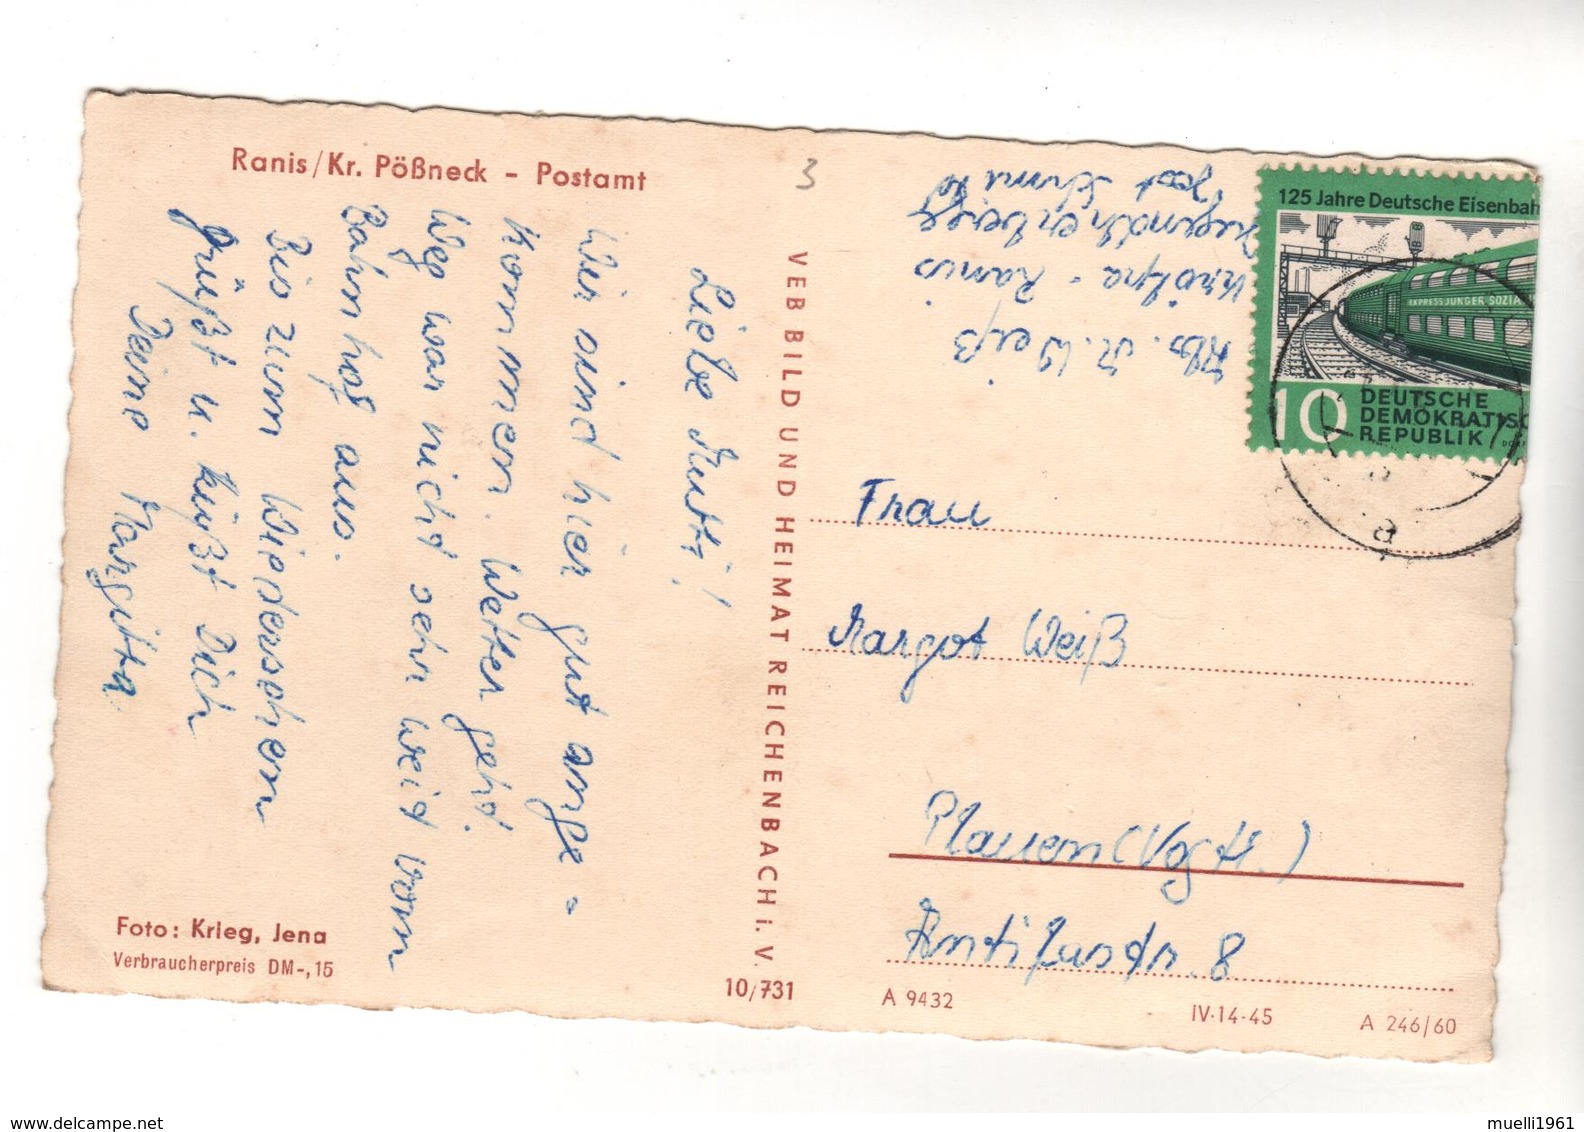 Ranis/Kr. Pößneck - Postamt
3
Liebe Mutti!
Wir sind hier gut ange-
kommen. Wetter geht.
Weg war nicht sehr weit vom
Bahnhof aus.
Bis zum Wiedersehen
grüßt u. küßt Dich
Deine Margitta
Foto: Krieg, Jena
Verbraucherpreis DM-,15
VEB BILD UND HEIMAT REICHENBACH i. V.
10/731
Abs. M. Weiß
Krölpa - Ranis
Jugendherberge
125 Jahre Deutsche Eisenbah
EXPRESS JUNGER SOZIA
10
DEUTSCHE
DEMOKRATISC
REPUBLIK
a
Frau
Margot Weiß
Plauen (Vogtl.)
Antifastr. 8
A 9432
IV-14-45
A 246/60
muelli1961
delcampe.net